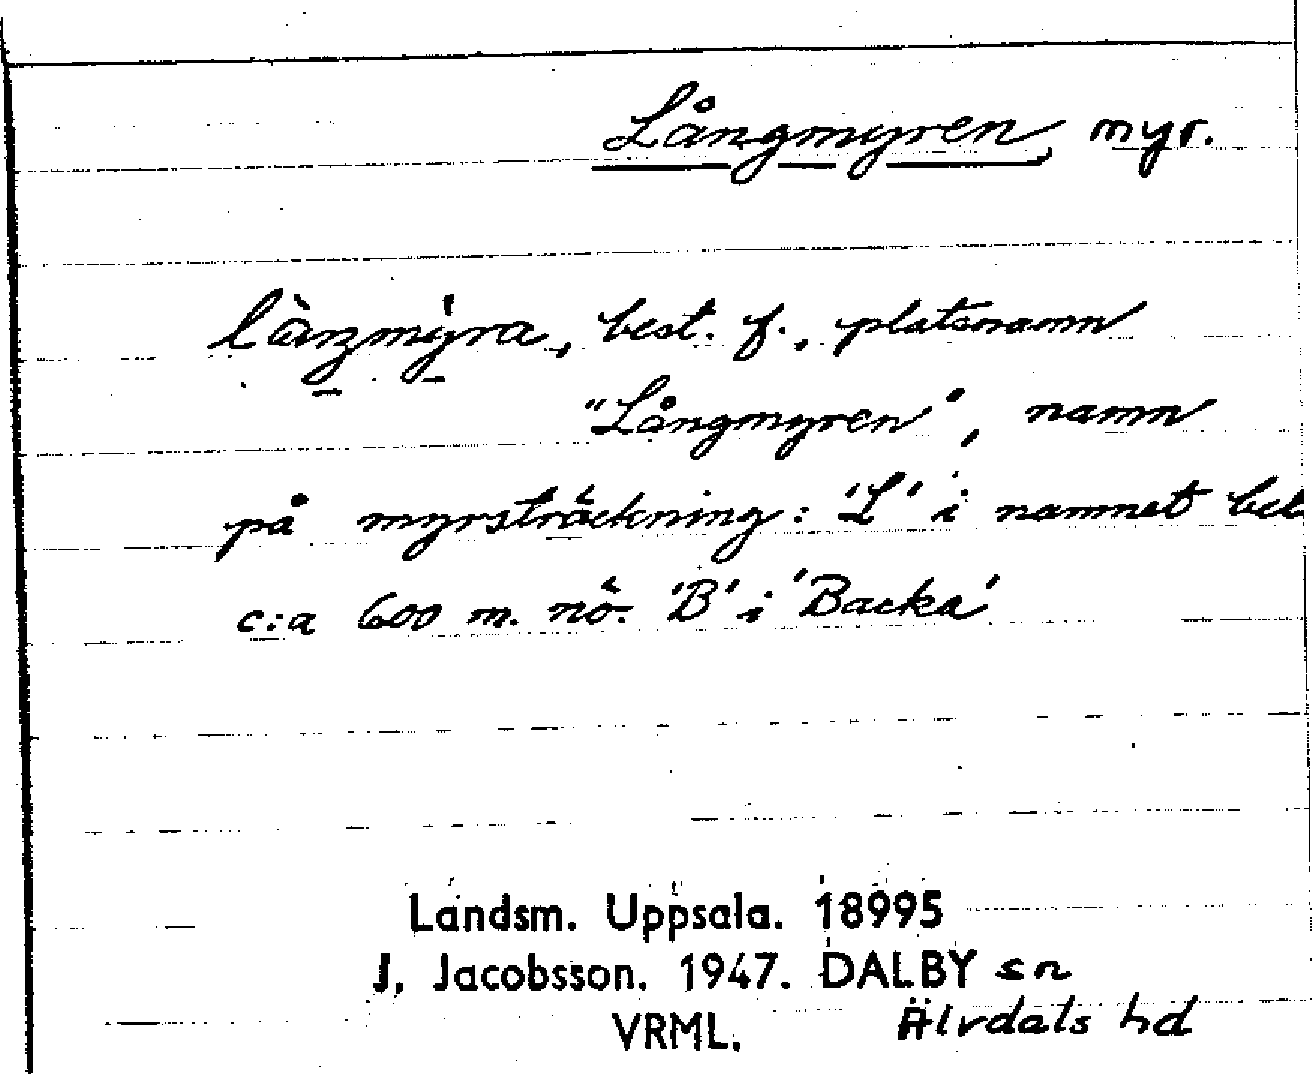 Långmyren, myr.
làŋmýra, best. f., platsnamn
"Långmyren", namn
på myrsträckning: 'L' i namnet bel
c:a 600 m. nö. 'B' i 'Backa'
Landsm. Uppsala. 18995
J. Jacobsson. 1947. DALBY sn
VRML. Älvdals hd